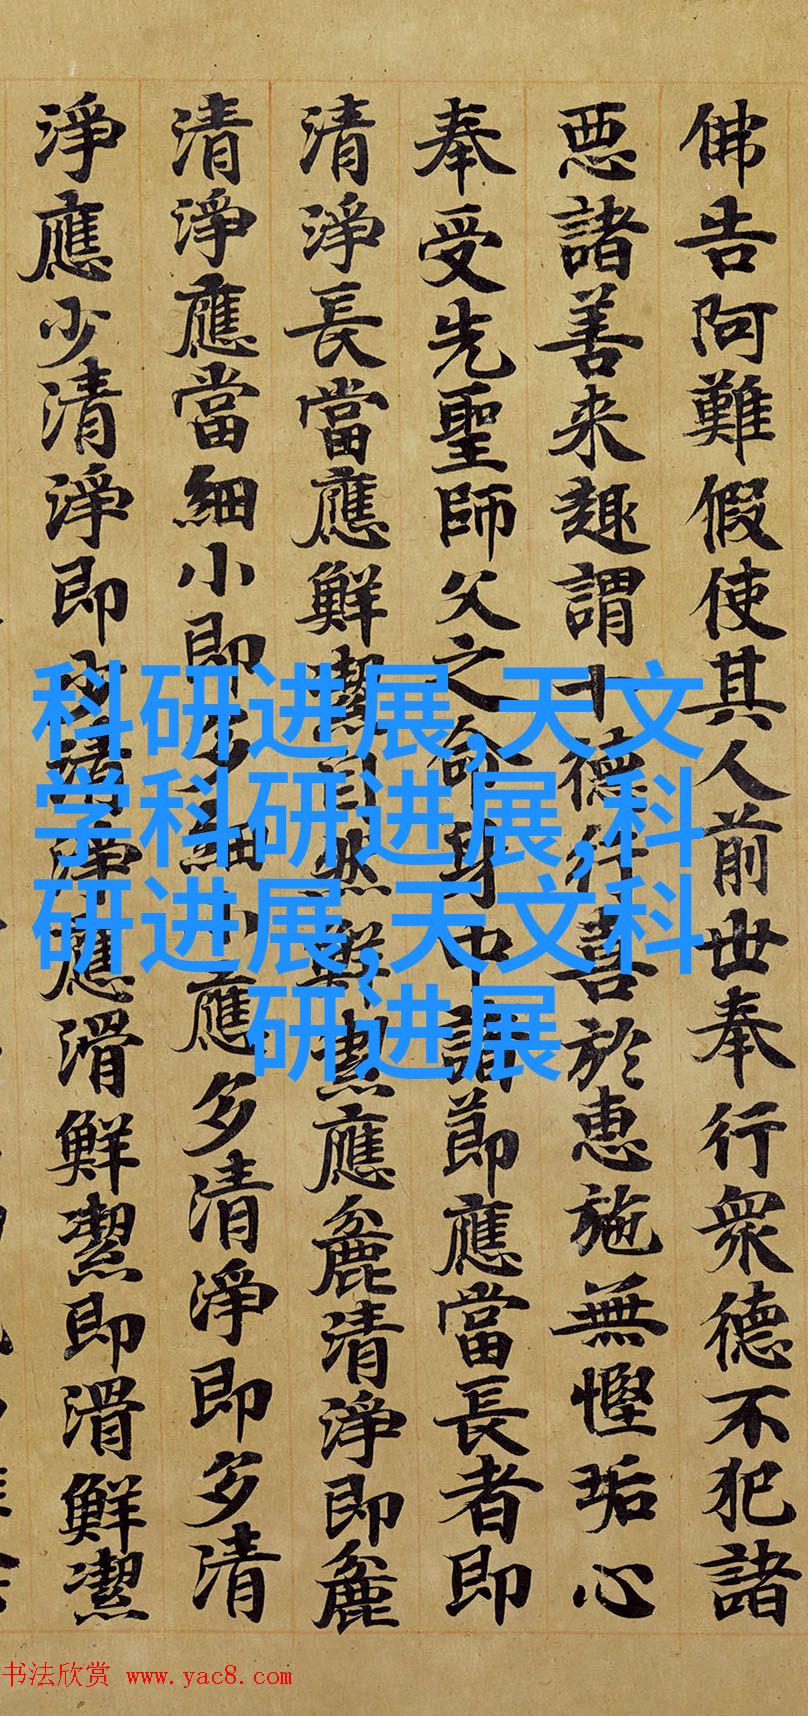 佛告阿難假使其人前世奉行衆德不犯諸
惡諸善来趣謂十德行喜於惠施無慳垢心
奉受先聖師父之命身中諸節應當長者即
清淨長當應鮮潔自然鮮潔應麁清淨即麁
清淨應當細小即細小應多清淨即多清
淨應少清淨即少清淨應滑鮮潔即滑鮮潔
科研进展,天文
学科研进展,科
研进展,天文科
研进展
书法欣赏 www.yac8.com